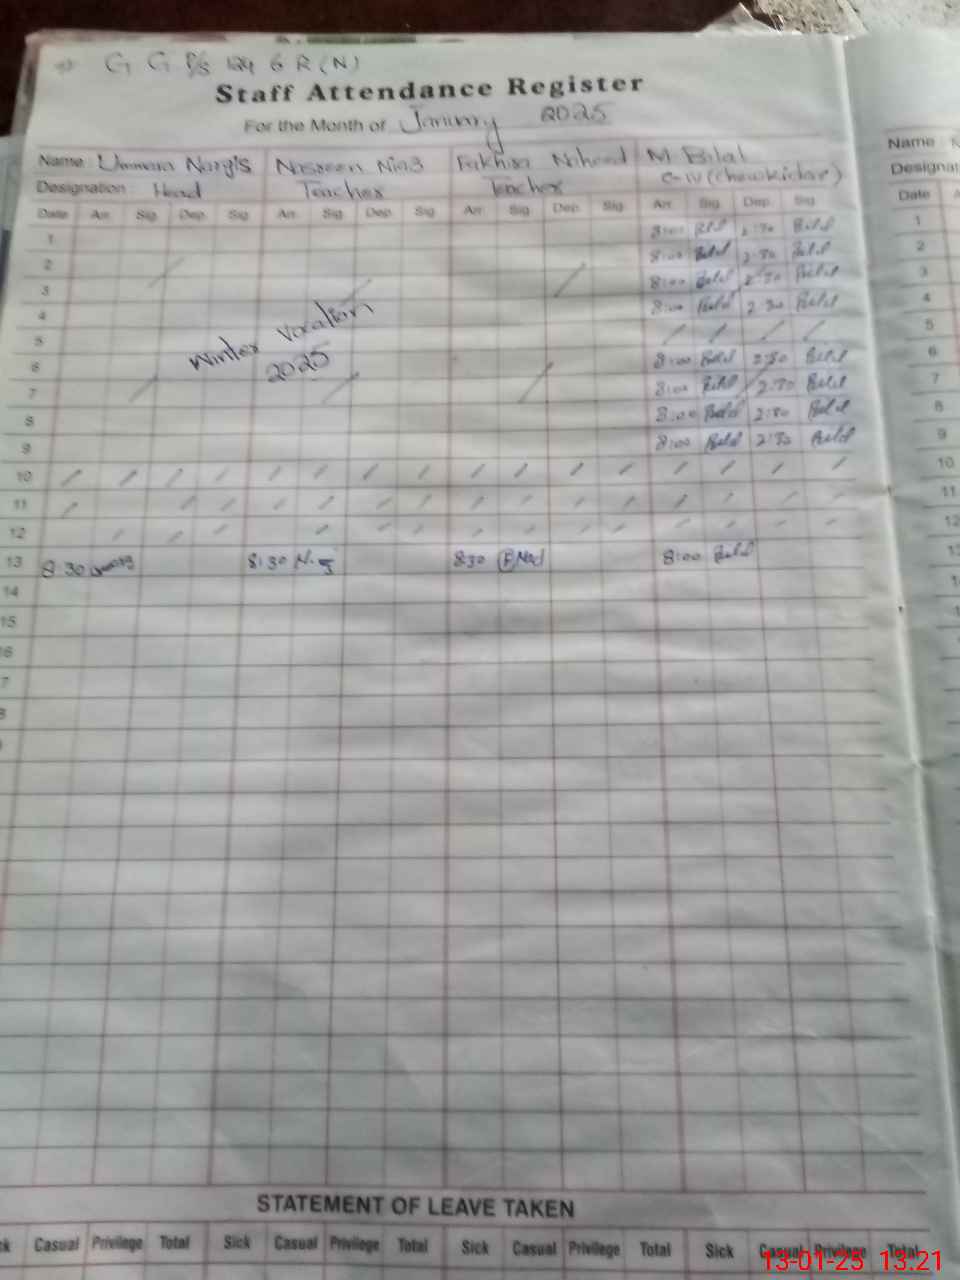 G G P/S 124 G R (N)
Staff Attendance Register
For the Month of January 2025
Name Ummara Nargis Nasreen Niaz Fakhira Naheed M Bilal
Designation Head Teacher Teacher C-IV (Chowkidar)
Date Arr. Sig. Dep. Sig. Arr. Sig. Dep. Sig. Arr. Sig. Dep. Sig. Arr. Sig. Dep. Sig.
1 8:00 2:30
2 8:00 2:30
3 8:00 2:30
4 8:00 2:30
5
6 8:00 2:30
7 8:00 2:30
8 8:00 2:30
9 8:00 2:30
Winter Vacation
2025
10
11
12
13 8:30 8:30 8:30 8:00
14
15
STATEMENT OF LEAVE TAKEN
Casual Privilege Total Sick Casual Privilege Total Sick Casual Privilege Total Sick Casual Privilege Total
Name
Date
1
2
3
4
5
6
7
8
9
10
11
12
13-01-25 13.21